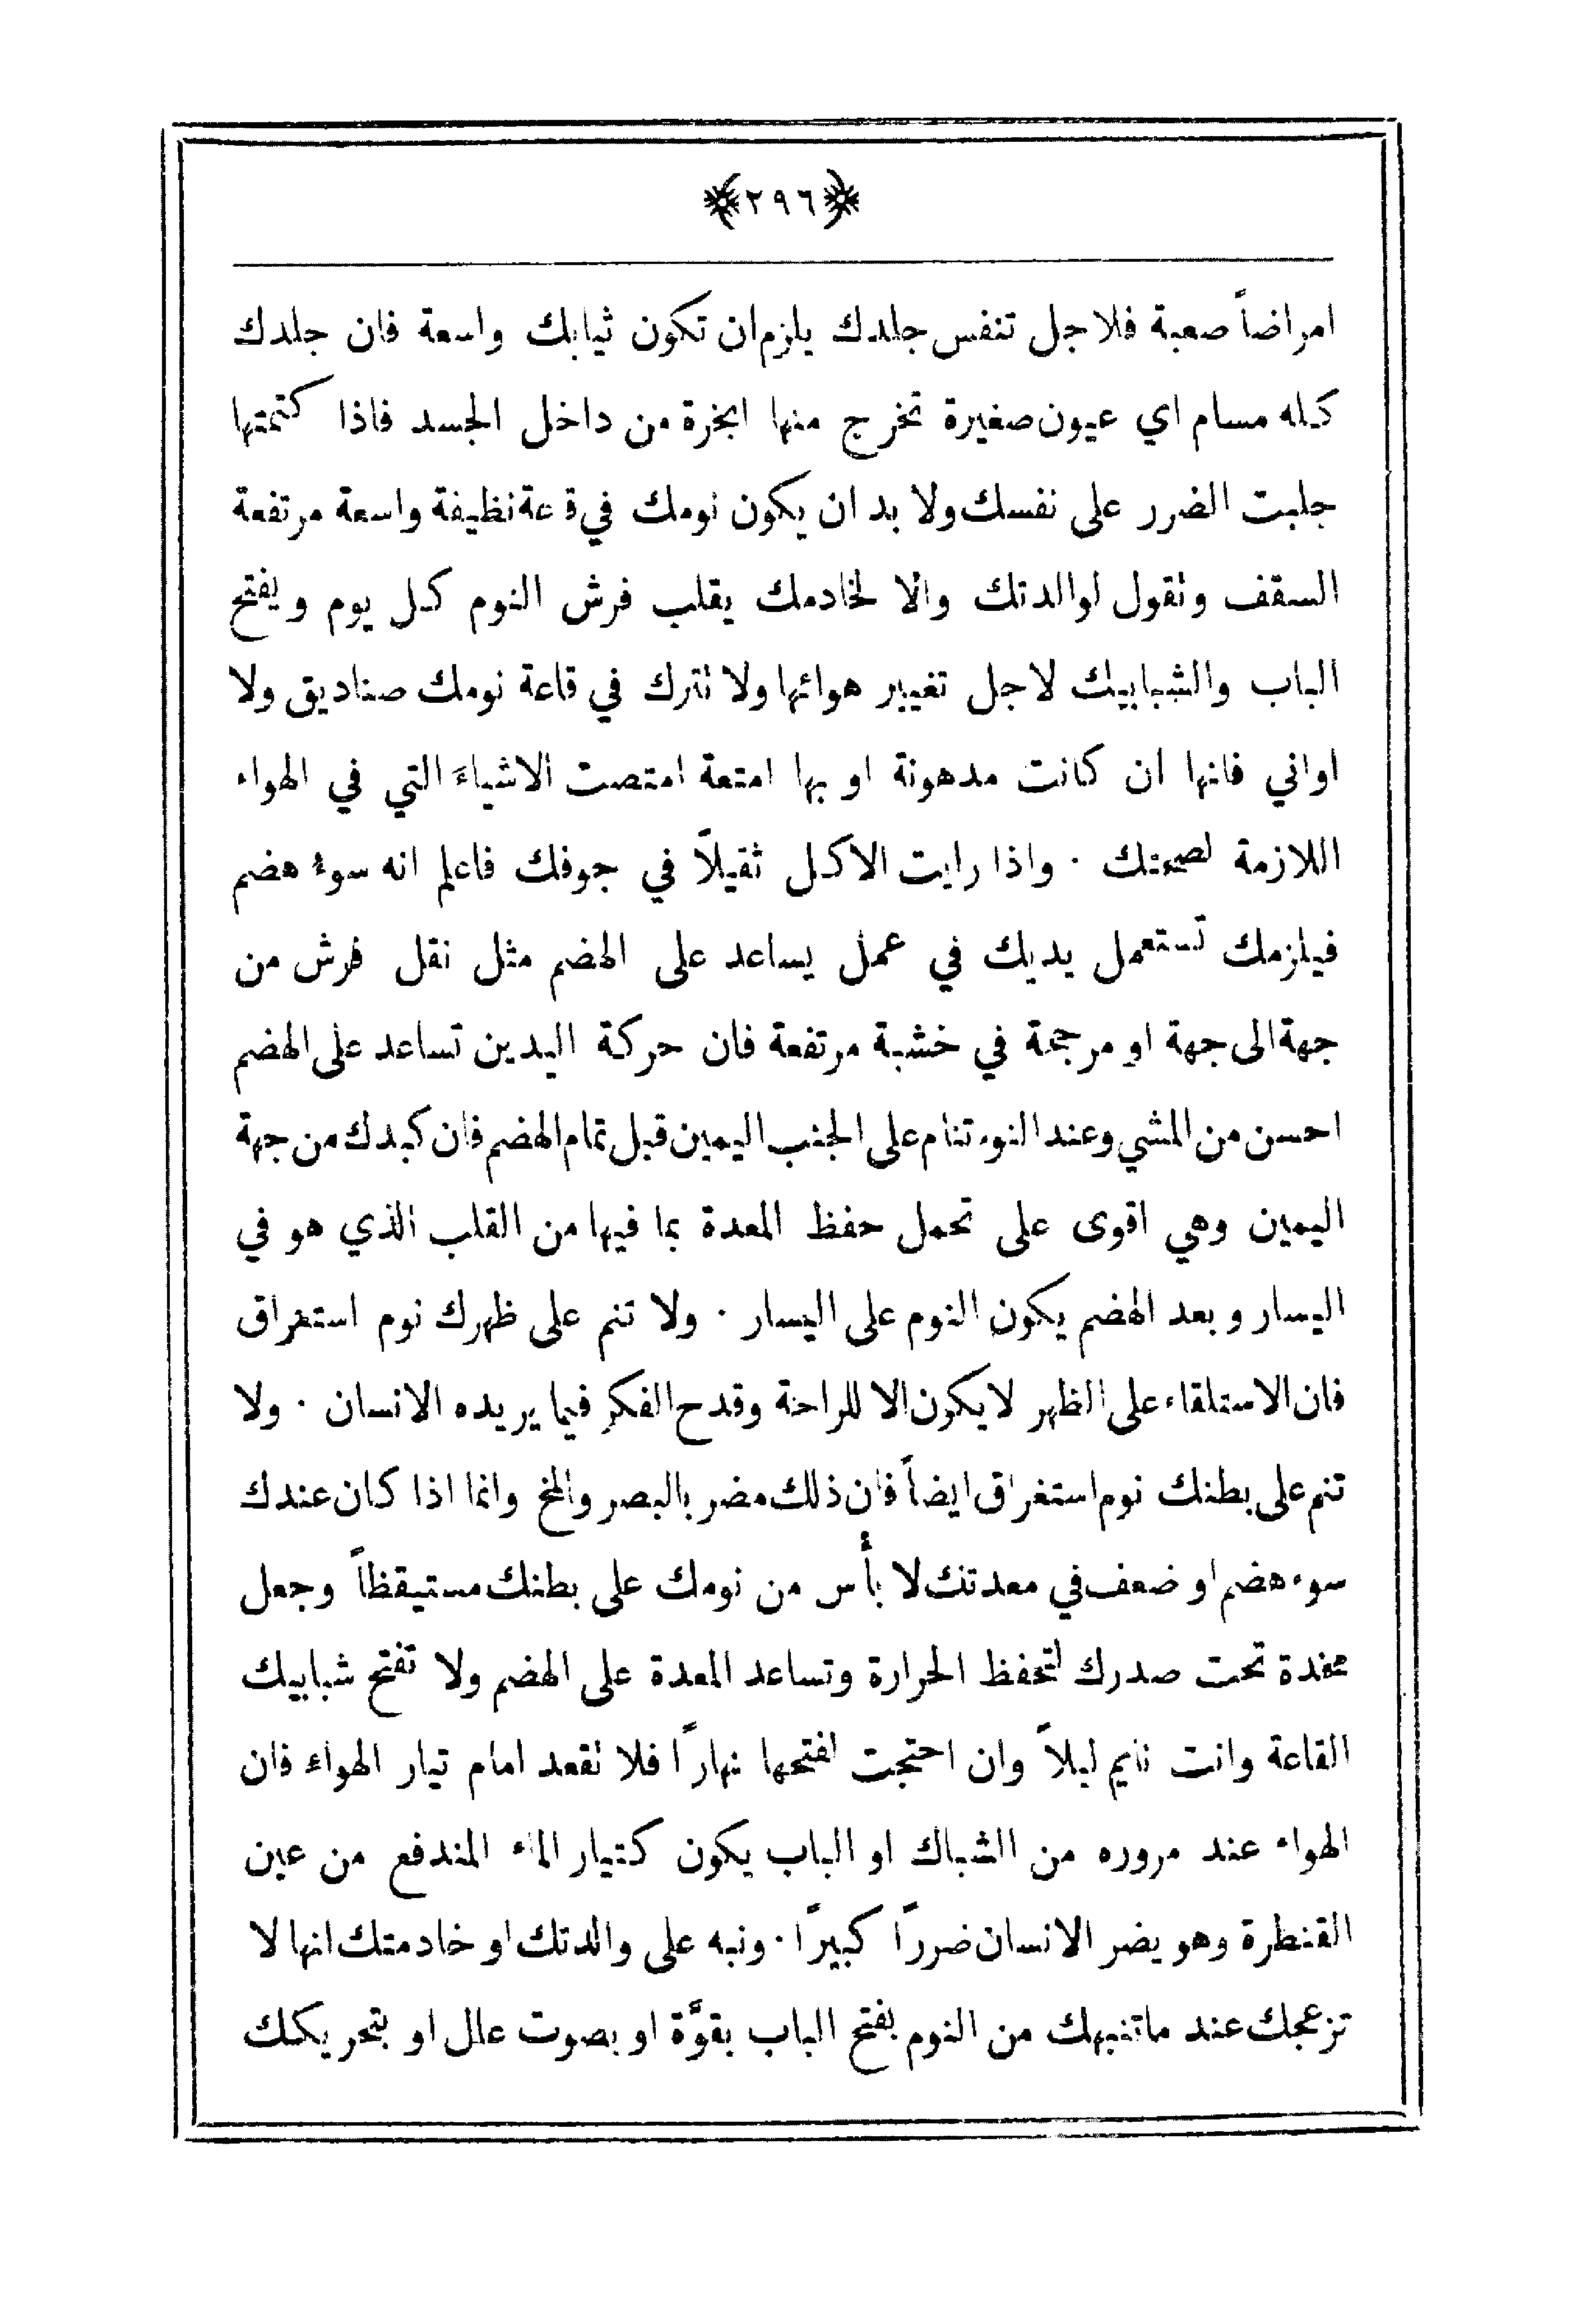 ﴿٢٩٦﴾
امراضاً صعبة فلاجل تنفس جلدك يلزم ان تكون ثيابك واسعة فان جلدك
كله مسام اي عيون صغيرة تخرج منها ابخرة من داخل الجسد فاذا كتمتها
جلبت الضرر على نفسك ولا بد ان يكون نومك في قاعة نظيفة واسعة مرتفعة
السقف ونقول لوالدتك والا لخادمك يقلب فرش النوم كل يوم ويفتح
الباب والشبابيك لاجل تغيير هوائها ولا نترك في قاعة نومك صناديق ولا
اواني فانها ان كانت مدهونة او بها امتعة امتصت الاشياءَ التي في الهواء
اللازمة لصحتك ٠ واذا رايت الاكل ثقيلاً في جوفك فاعلم انه سوءُ هضم
فيلزمك تستعمل يديك في عمل يساعد على الهضم مثل نقل فرش من
جهة الى جهة او مرجحة في خشبة مرتفعة فان حركة اليدين تساعد على الهضم
احسن من المشي وعند النوم تنام على الجنب اليمين قبل تمام الهضم فان كبدك من جهة
اليمين وهي اقوى على تحمل حفظ المعدة بما فيها من القلب الذي هو في
اليسار وبعد الهضم يكون النوم على اليسار ٠ ولا تنم على ظهرك نوم استغراق
فان الاستلقاء على الظهر لا يكون الا للراحة وقدح الفكر فيما يريده الانسان ٠ ولا
تنم على بطنك نوم استغراق ايضاً فان ذلك مضر بالبصر والمخ وانما اذا كان عندك
سوء هضم او ضعف في معدتك لا بأس من نومك على بطنك مستيقظاً وجعل
مخدة تحت صدرك لتحفظ الحرارة وتساعد المعدة على الهضم ولا تفتح شبابيك
القاعة وانت نايم ليلاً وان احتجت لفتحها نهاراً فلا نقعد امام تيار الهواء فان
الهواء عند مروره من الشباك او الباب يكون كتيار الماء المندفع من عين
القنطرة وهو يضر الانسان ضرراً كبيراً ٠ ونبه على والدتك او خادمتك انها لا
تزعجك عند ما تنبهك من النوم بفتح الباب بقوَّة او بصوت عال او بتحريكك